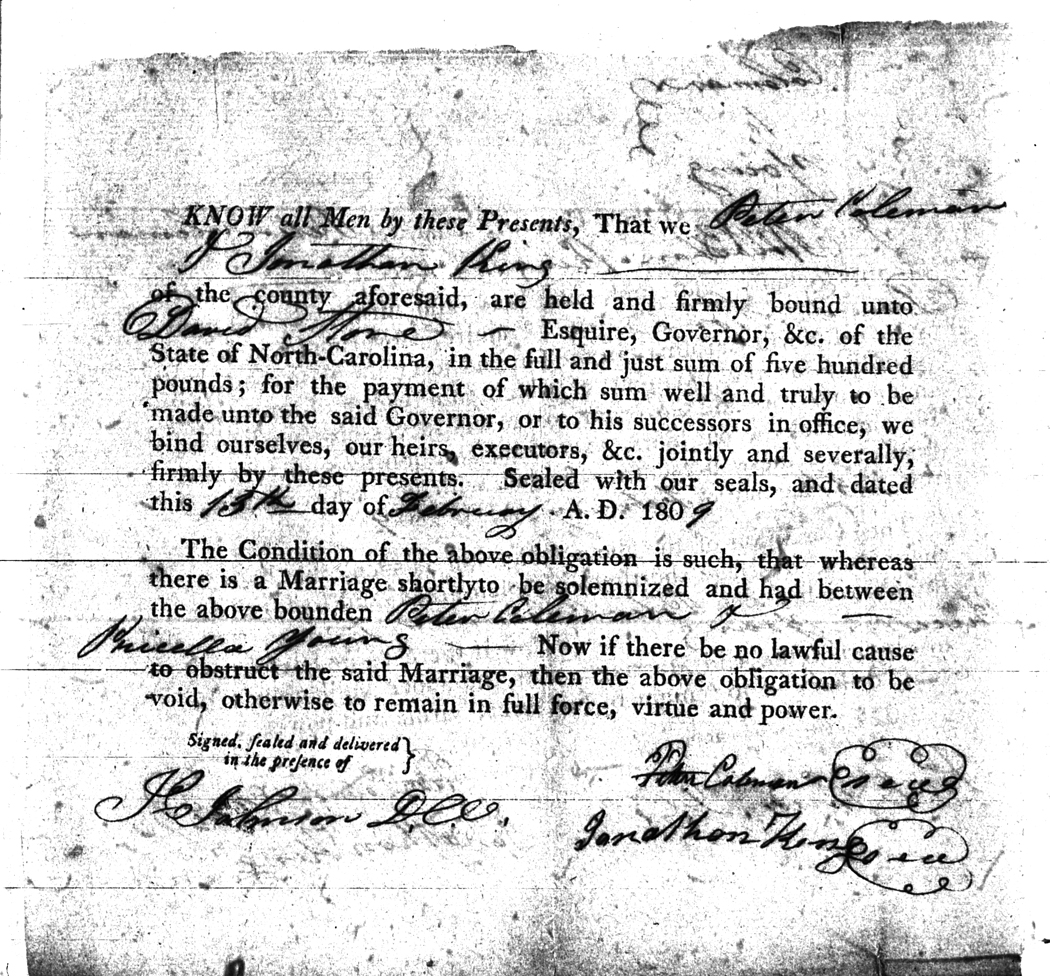 KNOW all Men by these Presents, That we Peter Coleman
& Jonathan King
of the county aforesaid, are held and firmly bound unto
David Stone — Esquire, Governor, &c. of the
State of North-Carolina, in the full and just sum of five hundred
pounds; for the payment of which sum well and truly to be
made unto the said Governor, or to his successors in office, we
bind ourselves, our heirs, executors, &c. jointly and severally,
firmly by these presents. Sealed with our seals, and dated
this 15th day of February A. D. 1809
The Condition of the above obligation is such, that whereas
there is a Marriage shortlyto be solemnized and had between
the above bounden Peter Coleman & —
Pricella Young — Now if there be no lawful cause
to obstruct the said Marriage, then the above obligation to be
void, otherwise to remain in full force, virtue and power.
Signed, sealed and delivered }
in the presence of
Johnson D.CC.
Peter Coleman Seal
Jonathan King Seal